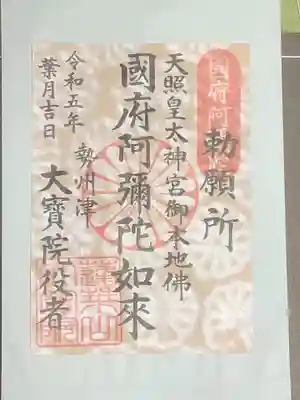 勅願所
天照皇太神宮御本地佛
國府阿彌陀如來
勢州津
大寶院役者
令和五年
葉月吉日